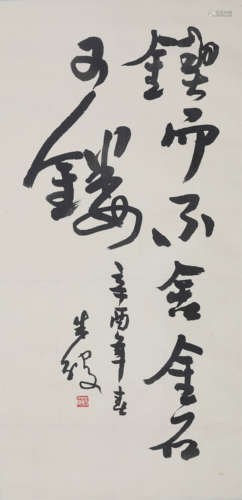 鍥而不舍金石
可鏤
辛酉年春
朱